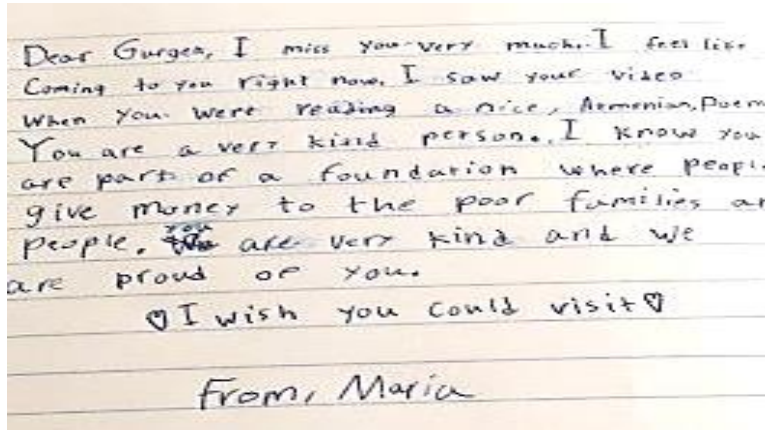 Dear Gurgen, I miss you very much. I feel like
Coming to you right now. I saw your video
when you were reading a nice, Armenian, Poem
You are a very kind person. I know you
are part of a foundation where people
give money to the poor families an
people. you are very kind and we
are proud of you.
♡ I wish you could visit ♡
From, Maria